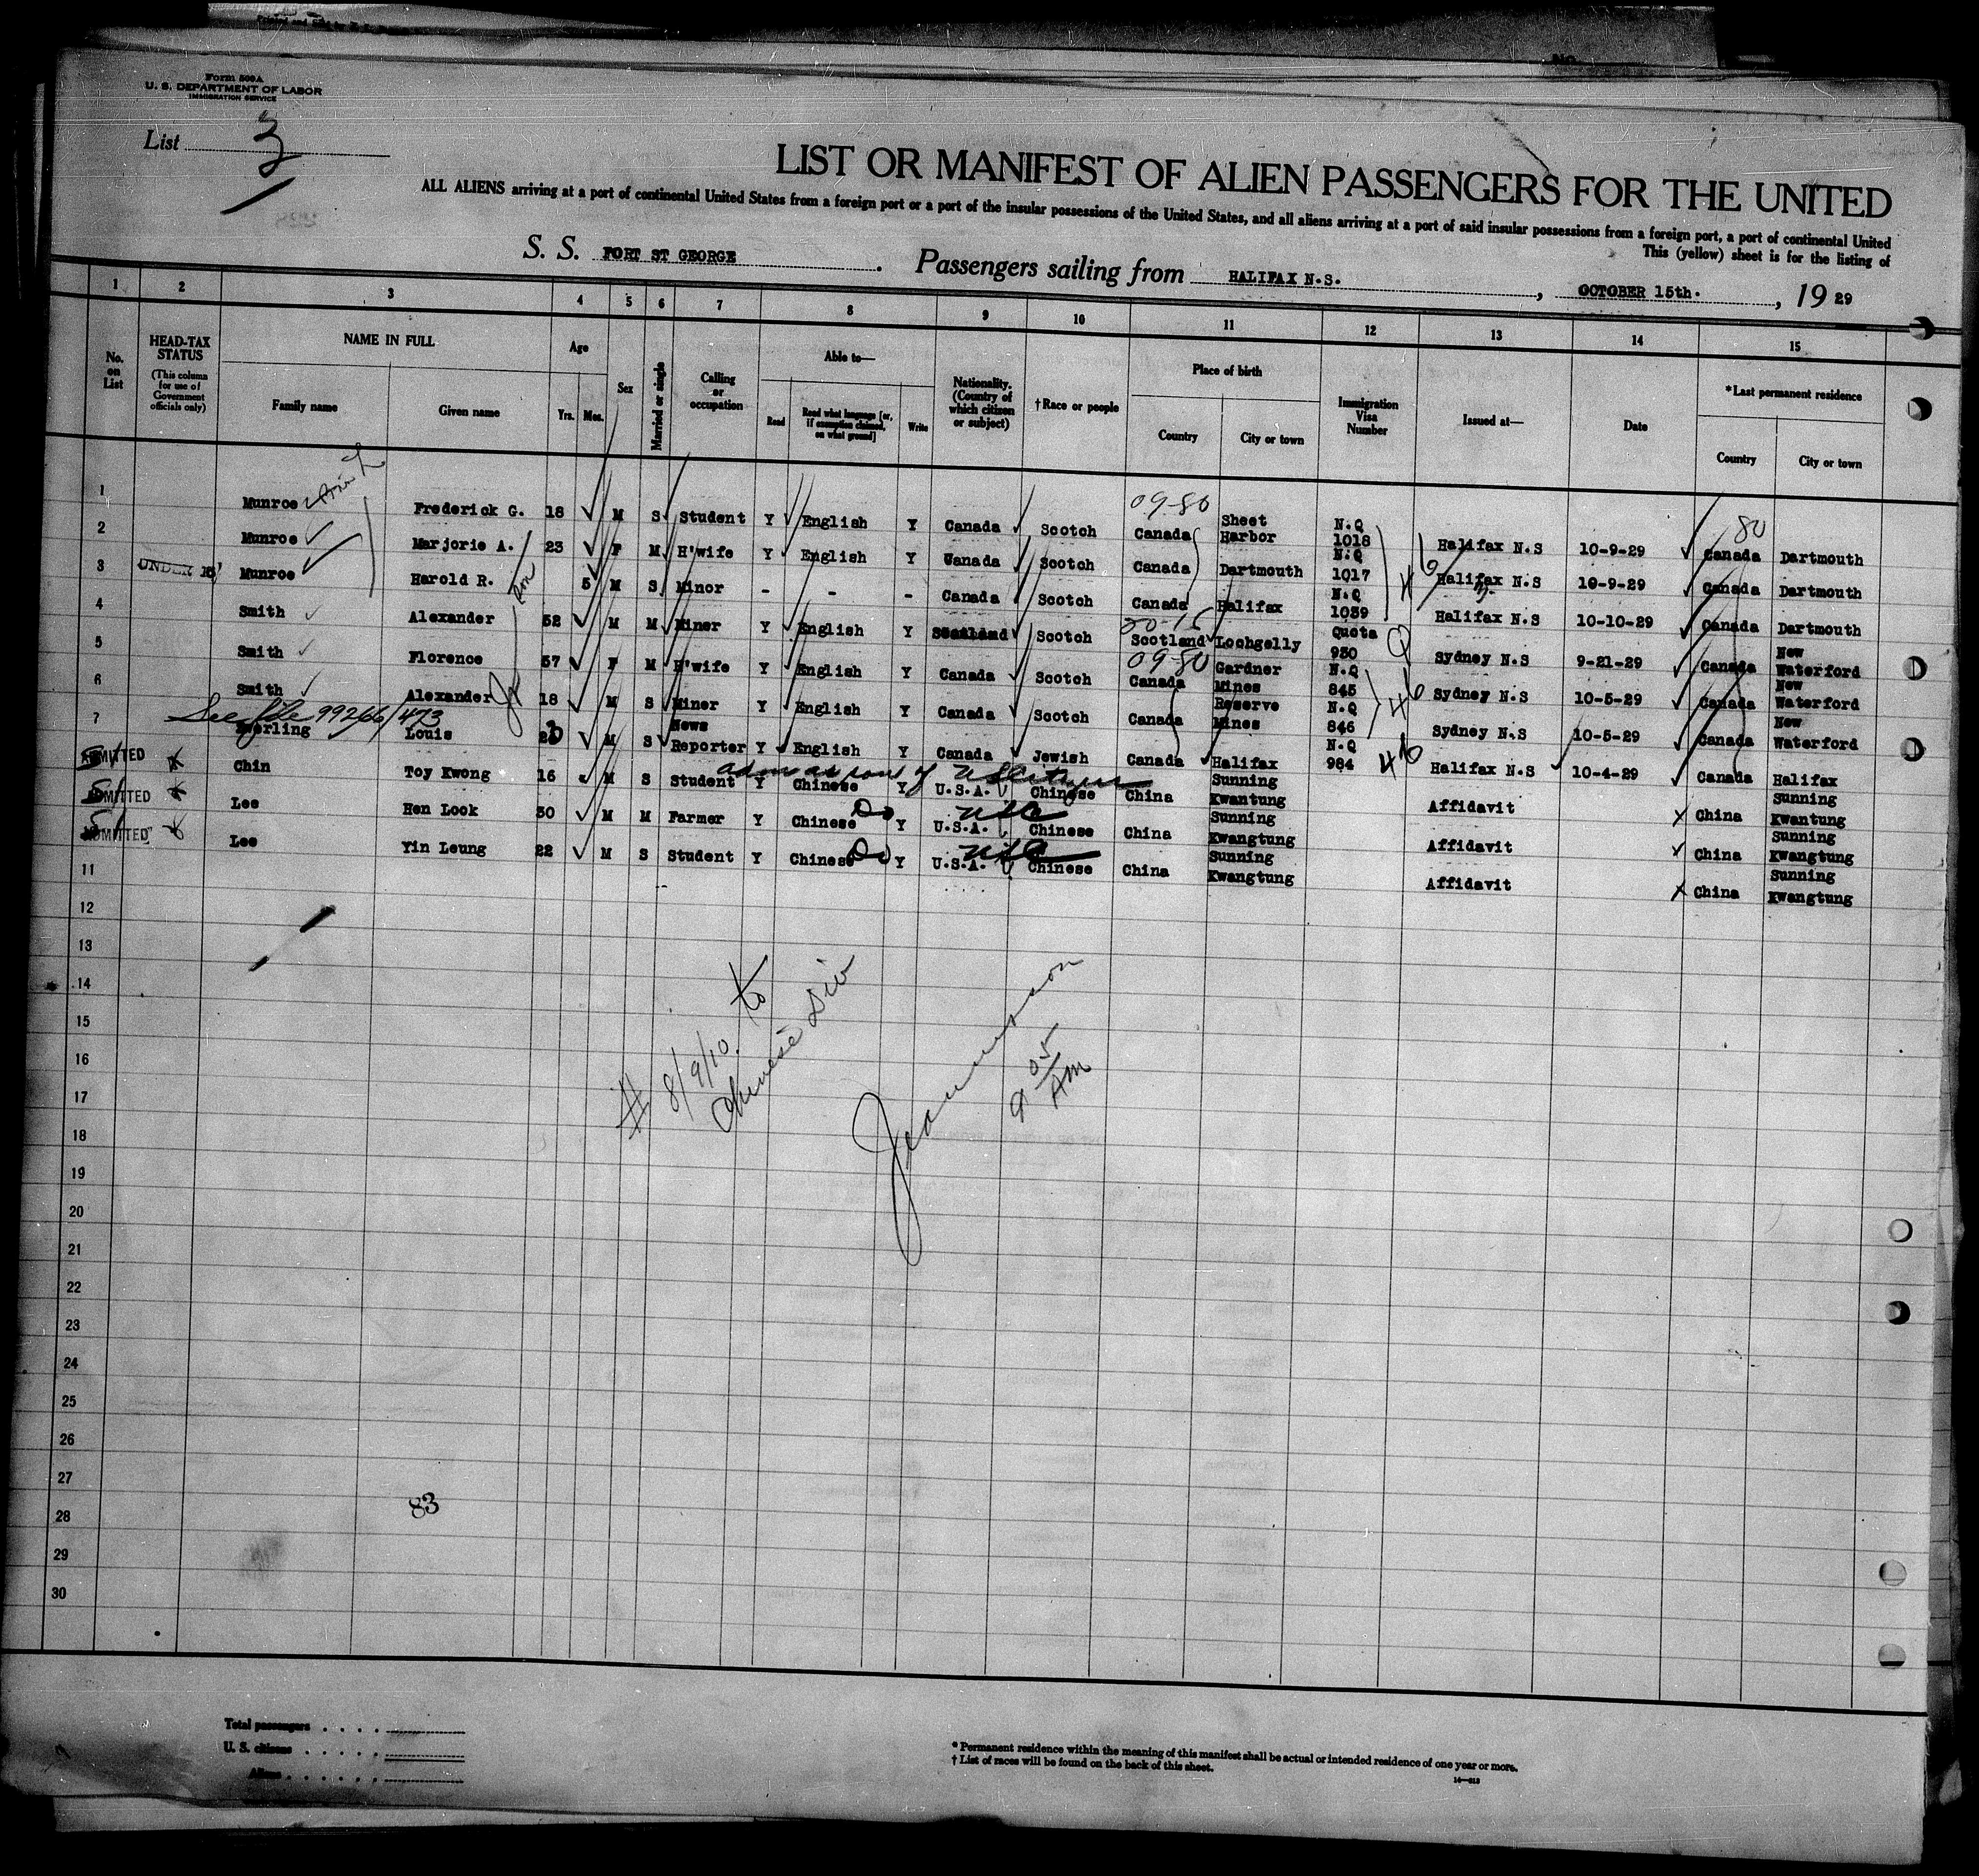 Form 500A
U. S. DEPARTMENT OF LABOR
IMMIGRATION SERVICE
List 3
LIST OR MANIFEST OF ALIEN PASSENGERS FOR THE UNITED
ALL ALIENS arriving at a port of continental United States from a foreign port or a port of the insular possessions of the United States, and all aliens arriving at a port of said insular possessions from a foreign port, a port of continental United
This (yellow) sheet is for the listing of
S. S. FORT ST GEORGE. Passengers sailing from HALIFAX N.S., OCTOBER 15th., 19 29
1 2 3 4 5 6 7 8 9 10 11 12 13 14 15
No. on List
HEAD-TAX STATUS (This column for use of Government officials only)
NAME IN FULL
Family name
Given name
Age
Yrs. Mos.
Sex
Married or single
Calling or occupation
Able to—
Read
Read what language [or, if exemption claimed, on what ground]
Write
Nationality. (Country of which citizen or subject)
†Race or people
Place of birth
Country
City or town
Immigration Visa Number
Issued at—
Date
*Last permanent residence
Country
City or town
1 Munroe Frederick G. 18 M S Student Y English Y Canada Scotch 09-80 Canada Sheet Harbor N.Q 1018 Halifax N.S 10-9-29 80 Canada Dartmouth
2 Munroe Marjorie A. 23 F M H'wife Y English Y Wanada Scotch Canada Dartmouth N.Q 1017 Halifax N.S 10-9-29 Canada Dartmouth
3 UNDER 16 Munroe Harold R. 5 M S Minor - - - Canada Scotch Canada Halifax N.Q 1039 Halifax N.S 10-10-29 Canada Dartmouth
4 Smith Alexander 52 M M Miner Y English Y Scotland Scotch Scotland Lochgelly Quota 930 Q Sydney N.S 9-21-29 Canada New Waterford
5 Smith Florence 37 F M H'wife Y English Y Canada Scotch 09-80 Canada Gardner Mines N.Q 845 Sydney N.S 10-5-29 Canada New Waterford
6 Smith Alexander Jr 18 M S Miner Y English Y Canada Scotch Canada Reserve Mines N.Q 846 Sydney N.S 10-5-29 Canada New Waterford
See file 99266/473
7 Louis M S News Reporter Y English Y Canada Jewish Canada Halifax N.Q 984 Halifax N.S 10-4-29 Canada Halifax
ADMITTED Chin Toy Kwong 16 M S Student Y Chinese Y U.S.A. Chinese China Sunning Kwantung Affidavit China Sunning Kwantung
adm as son of US Citizen
ADMITTED Lee Hen Look 30 M M Farmer Y Chinese Do Y U.S.A. USC Chinese China Sunning Kwangtung Affidavit China Sunning Kwangtung
ADMITTED Lee Yin Leung 22 M S Student Y Chinese Do Y U.S.A. USC Chinese China Sunning Kwangtung Affidavit China Sunning Kwangtung
11
12
13
14
15
16
17
18
19
20
21
22
23
24
25
26
27
28
29
30
# 8/9/10 to
Chinese Div
9 05 AM
83
Total passengers
U. S. citizens
Aliens
* Permanent residence within the meaning of this manifest shall be actual or intended residence of one year or more.
† List of races will be found on the back of this sheet.